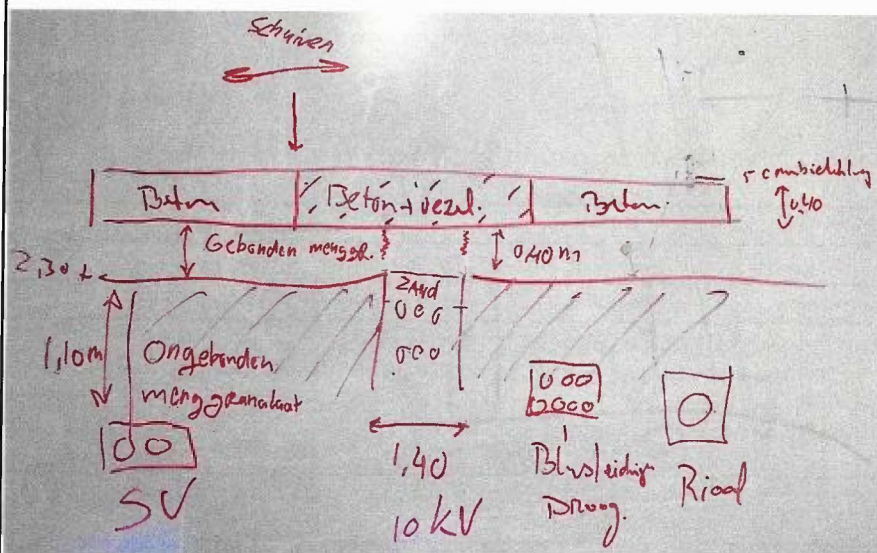 Schuiven
Beton
Beton + vezel.
Beton
0,40
Gebonden menggr.
0,40 m
2,30+
Zand
1,10m
Ongebonden
menggranulaat
SV
1,40
10 kV
Blusleiding
Droog.
Riool